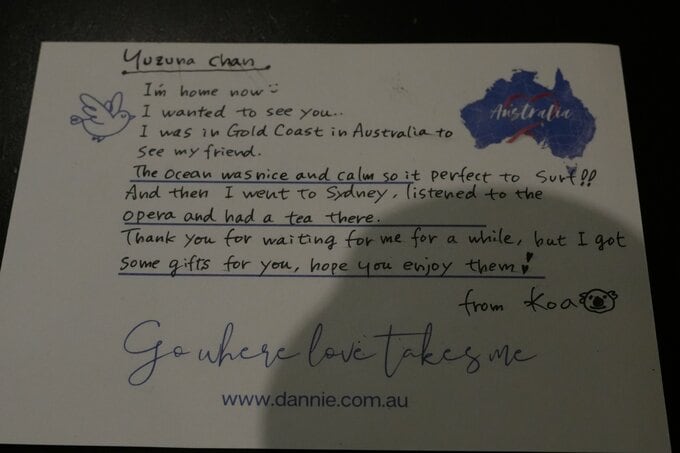 Yuzuna chan
I'm home now
I wanted to see you..
Australia
I was in Gold Coast in Australia to
see my friend.
The ocean was nice and calm so it perfect to surf!!
And then I went to Sydney, listened to the
opera and had a tea there.
Thank you for waiting for me for a while, but I got
some gifts for you, hope you enjoy them!
from Koa
Go where love takes me
www.dannie.com.au